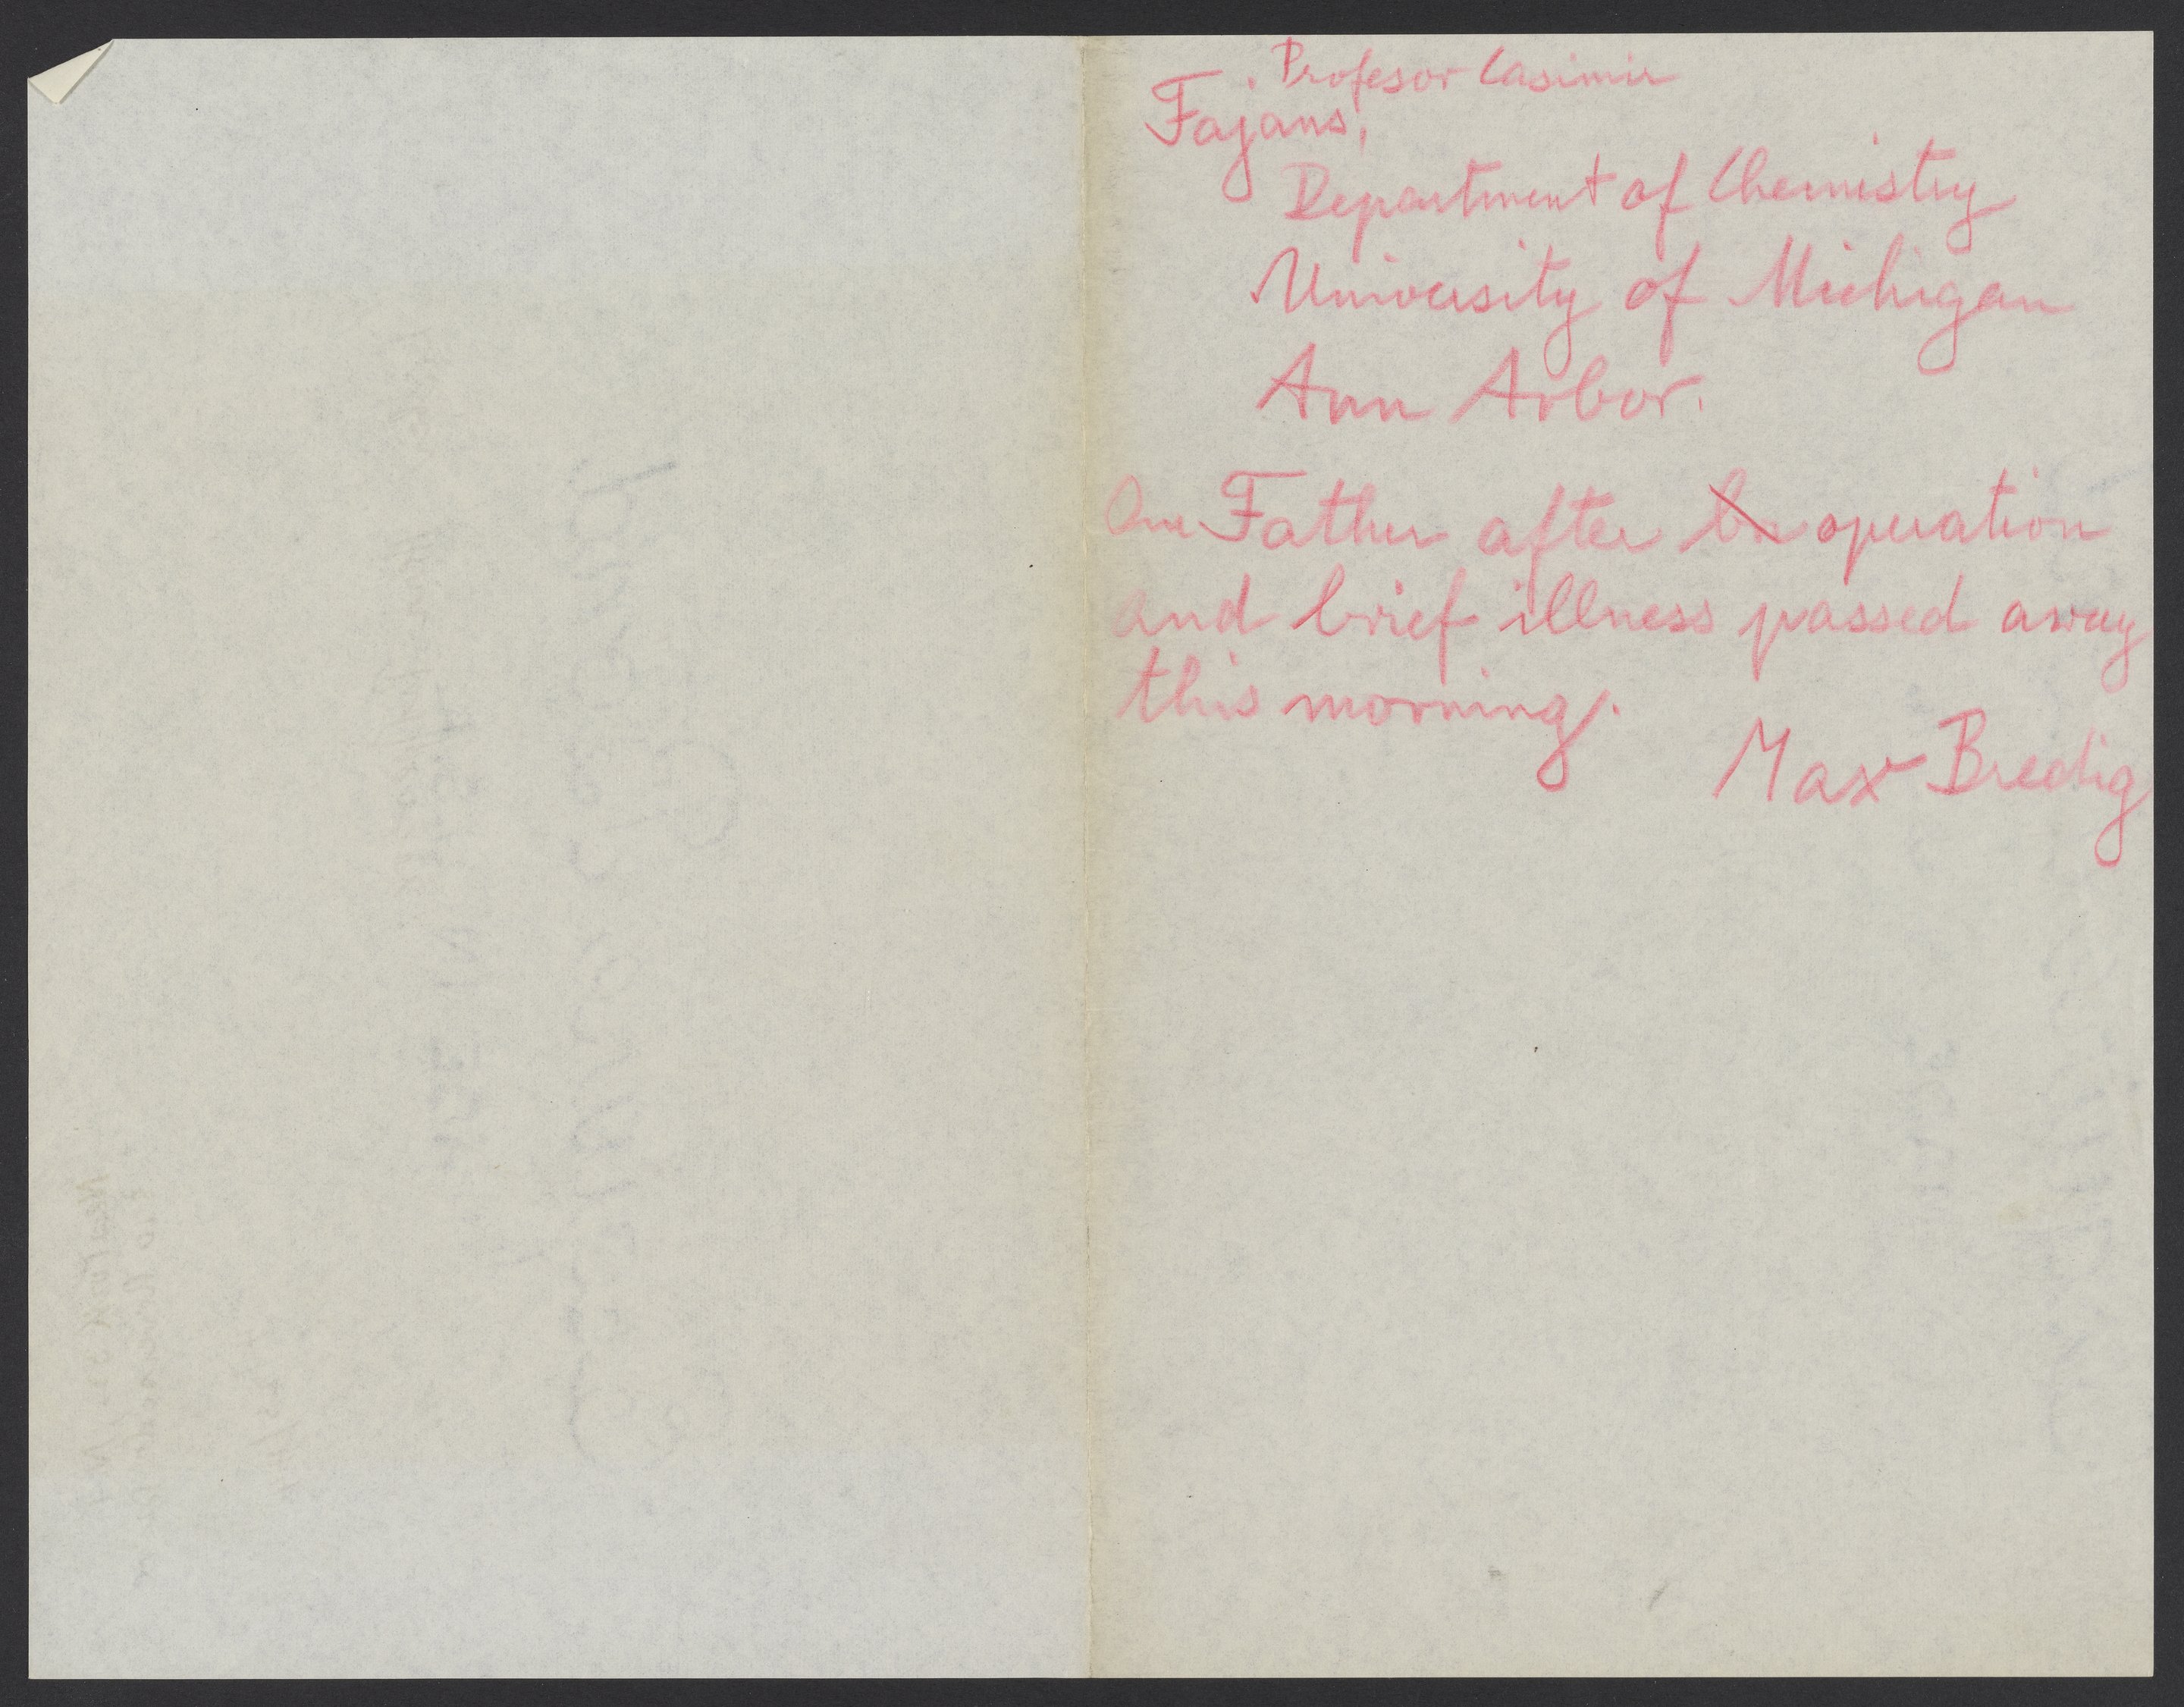 Profesor Casimir
Fajans,
Department of Chemistry
University of Michigan
Ann Arbor.
Our Father after br operation
and brief illness passed away
this morning.
Max Bredig